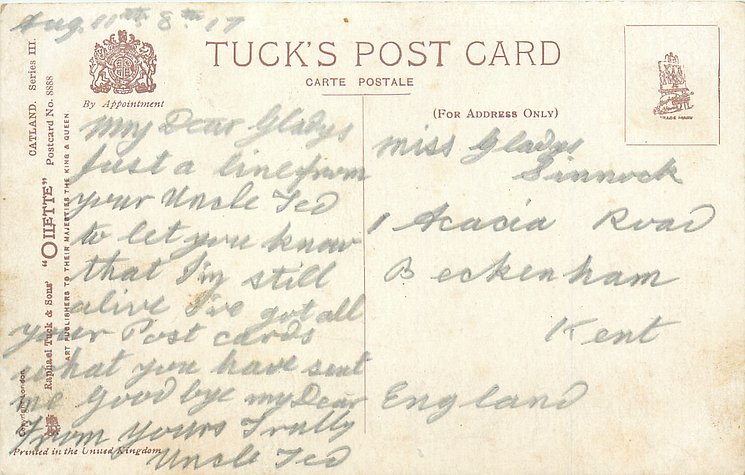 Aug. 11th 8th 17
TUCK'S POST CARD
CARTE POSTALE
By Appointment
(FOR ADDRESS ONLY)
TRADE MARK
CATLAND. Series III.
Postcard No. 8888
Raphael Tuck & Sons' "OILETTE"
ART PUBLISHERS TO THEIR MAJESTIES THE KING & QUEEN
Copyright London
My Dear Gladys
Just a line from
your Uncle Ted
to let you know
that I'm still
alive I've got all
your Post cards
what you have sent
me Good bye my Dear
From yours Trully
Uncle Ted
Printed in the United Kingdom
Miss Gladys
Sinnock
1 Acacia Road
Beckenham
Kent
England